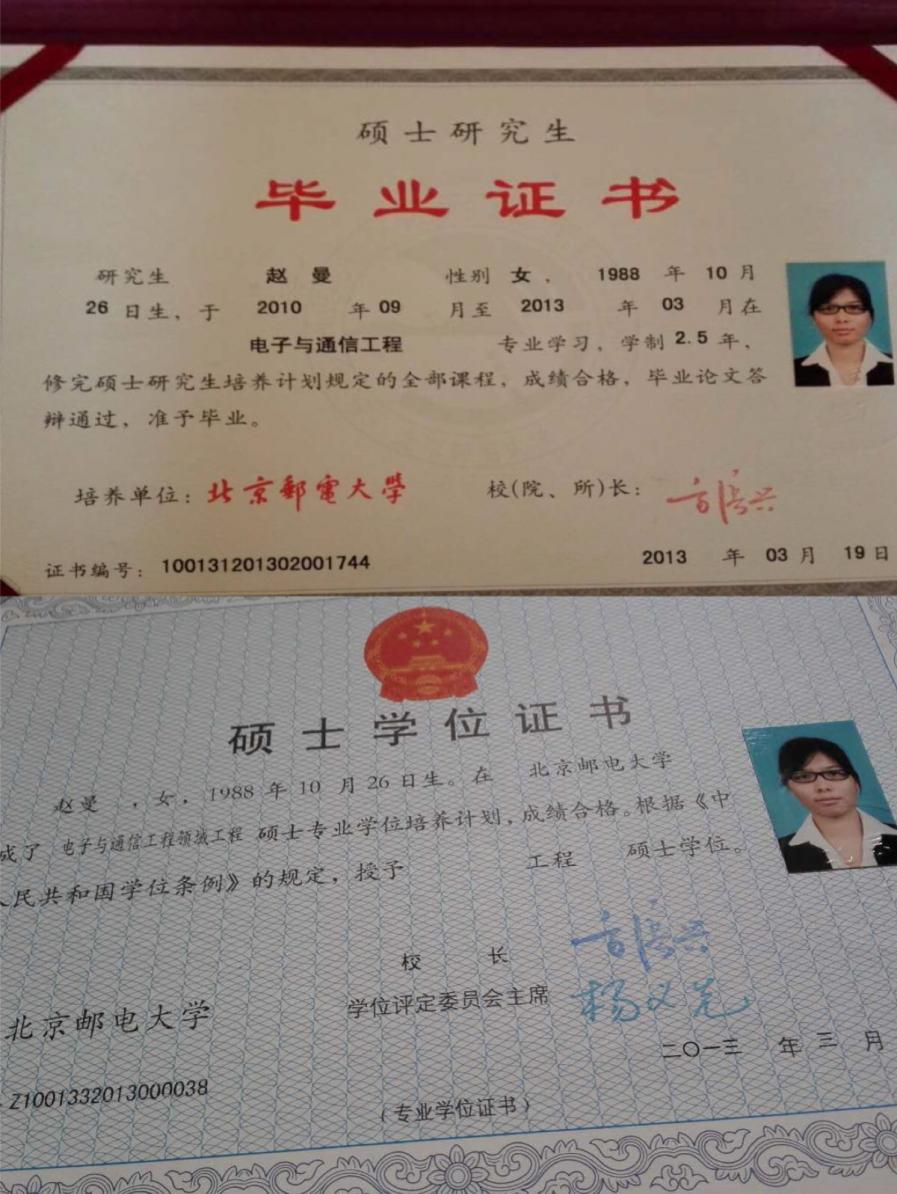 硕士研究生
毕业证书
研究生 赵曼 性别 女, 1988 年 10 月
26 日生, 于 2010 年 09 月至 2013 年 03 月在
电子与通信工程 专业学习, 学制 2.5 年,
修完硕士研究生培养计划规定的全部课程, 成绩合格, 毕业论文答
辩通过, 准予毕业。
培养单位: 北京郵電大學 校(院、所)长: 方滨兴
证书编号: 100131201302001744 2013 年 03 月 19 日
硕士学位证书
赵曼 , 女, 1988 年 10 月 26 日生。在 北京邮电大学
成了 电子与通信工程领域工程 硕士专业学位培养计划, 成绩合格。根据《中
人民共和国学位条例》的规定, 授予 工程 硕士学位。
校 长 方滨兴
学位评定委员会主席 杨义先
北京邮电大学
二〇一三 年 三 月
Z1001332013000038
(专业学位证书)